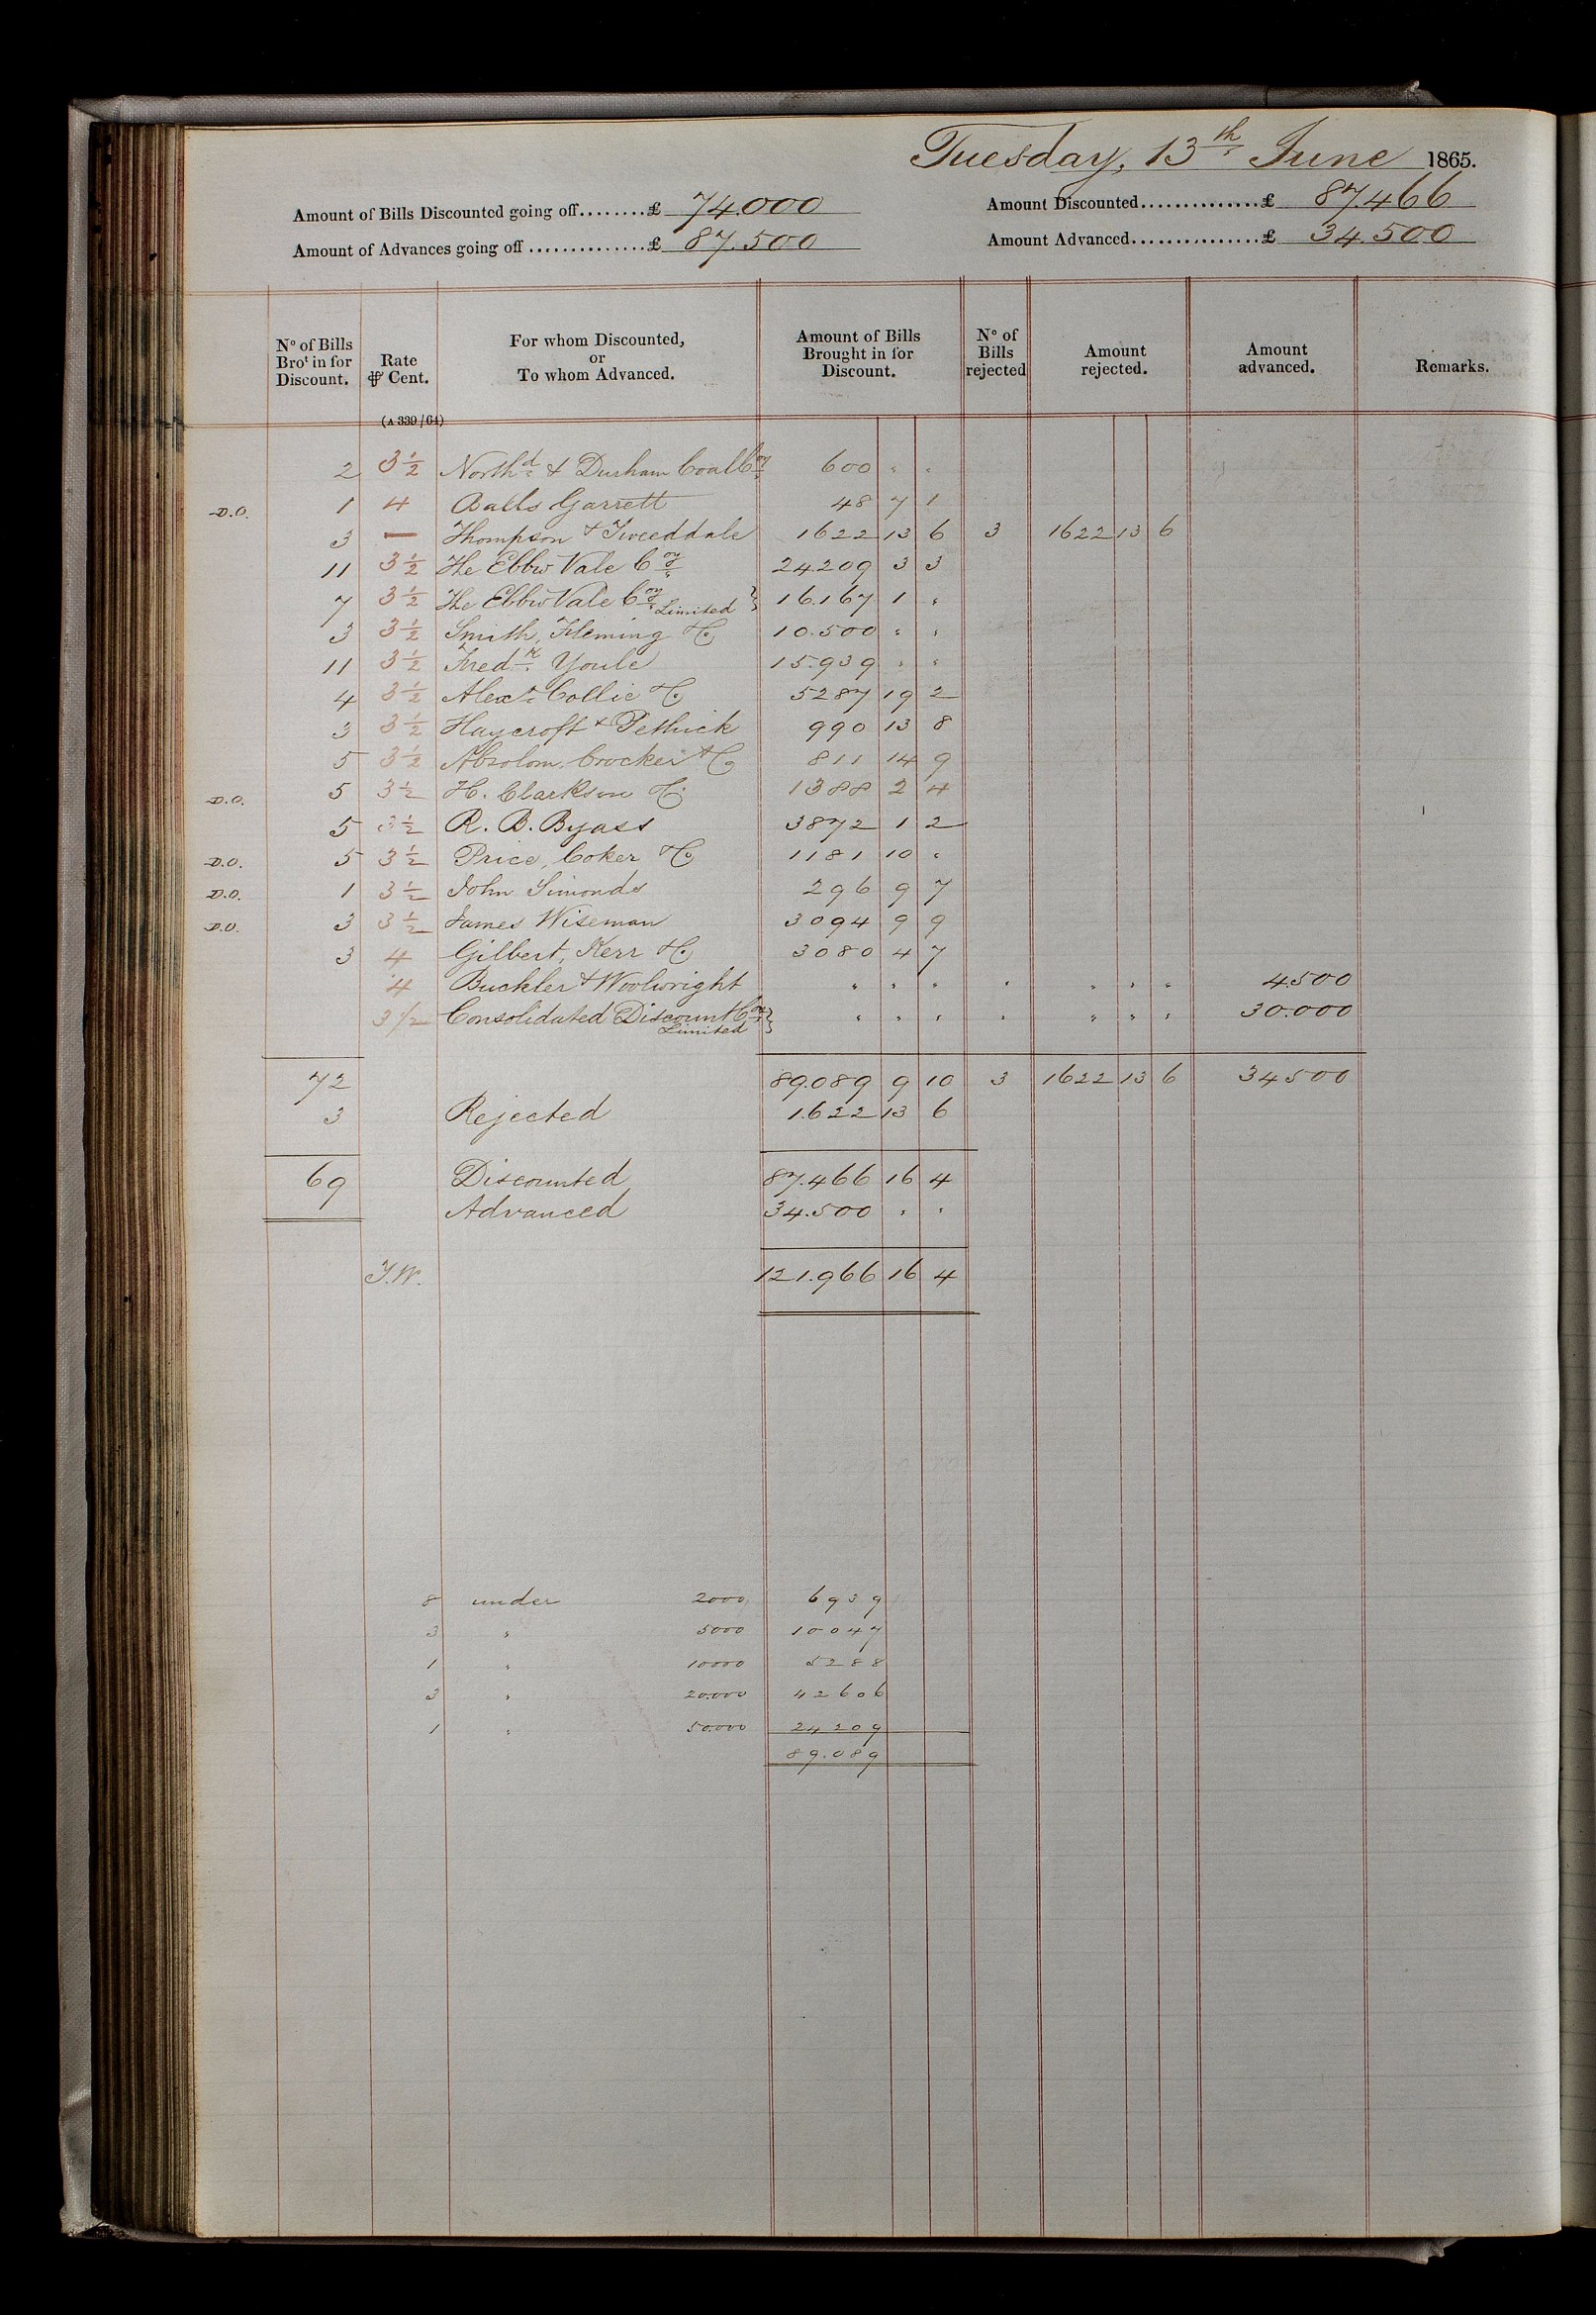 Tuesday, 13th June 1865.
Amount of Bills Discounted going off........£ 74.000 Amount Discounted..............£ 87.466
Amount of Advances going off ..............£ 87.500 Amount Advanced...............£ 34.500
No of Bills Brot in for Discount. Rate ⅌ Cent. For whom Discounted, or To whom Advanced. Amount of Bills Brought in for Discount. No of Bills rejected Amount rejected. Amount advanced. Remarks.
(A 339/64)
2 3½ Northd & Durham Coal Coy 600 " "
D.O. 1 4 Balls Garrett 48 7 1
3 — Thompson & Tweeddale 1622 13 6 3 1622 13 6
11 3½ The Ebbw Vale Coy 24.209 3 3
7 3½ The Ebbw Vale Coy Limited } 16.167 1 "
3 3½ Smith, Fleming & Co 10.500 " "
11 3½ Fredk Youle 15.939 " "
4 3½ Alexr Collie & Co 5287 19 2
3 3½ Haycroft & Pethick 990 13 8
5 3½ Absolom, Crocker & Co 811 14 9
D.O. 5 3½ H. Clarkson & Co 1388 2 4
5 3½ R. B. Byass 3872 1 2
D.O. 5 3½ Price, Coker & Co 1181 10 "
D.O. 1 3½ John Simonds 296 9 7
D.O. 3 3½ James Wiseman 3094 9 9
3 4 Gilbert, Kerr & Co 3080 4 7
4 Buckler & Woolwright " " " " " " " 4500
3½ Consolidated Discount Coy Limited } " " " " " " " 30.000
72 89.089 9 10 3 1622 13 6 34500
3 Rejected 1.622 13 6
69 Discounted 87.466 16 4
Advanced 34.500 " "
J.W. 121.966 16 4
8 under 2000 6939
3 " 5000 10047
1 " 10000 5288
3 " 20.000 42606
1 " 50.000 24209
89.089